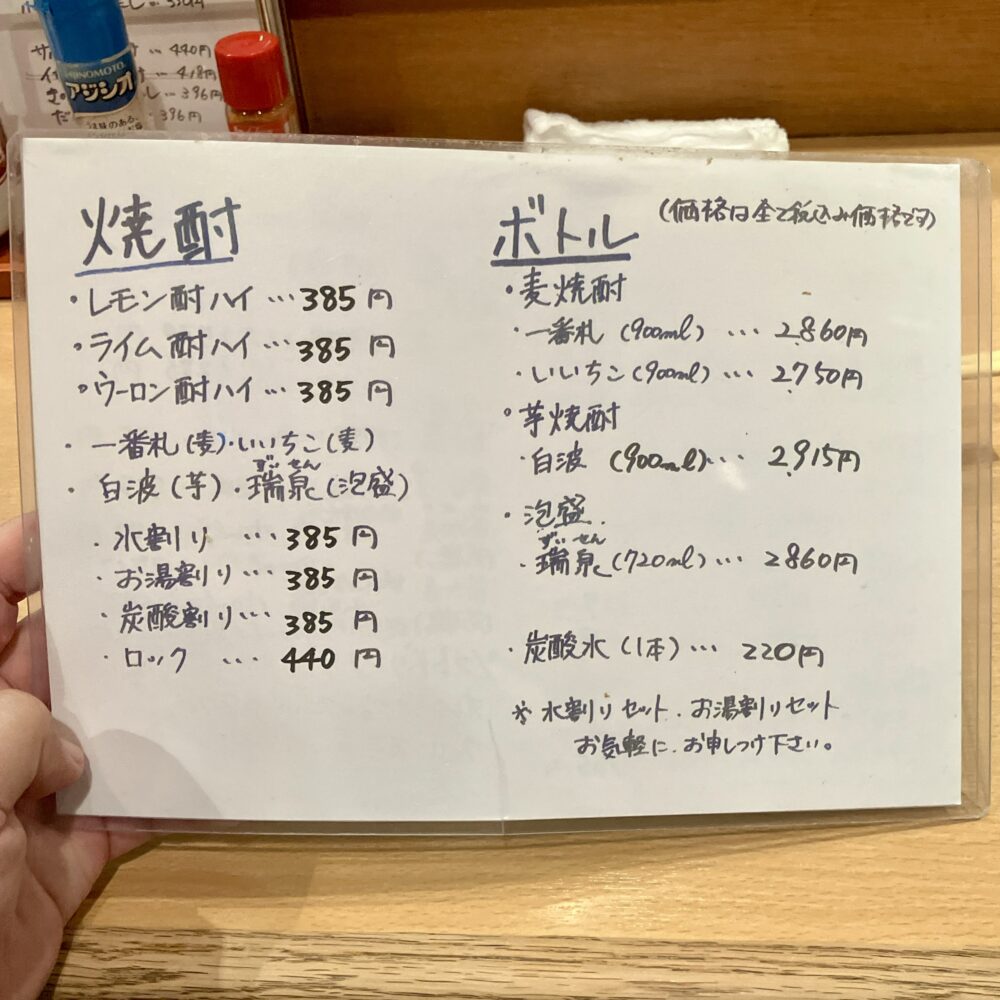 サ
… 440円
… 418円
し… 396円
だ
396円
AJINOMOTO
アジシオ
焼酎
・レモン酎ハイ … 385円
・ライム酎ハイ … 385円
・ウーロン酎ハイ … 385円
・一番札(麦)・いいちこ(麦)
ずいせん
・白波(芋)・瑞泉(泡盛)
・水割り … 385円
・お湯割り … 385円
・炭酸割り … 385円
・ロック … 440円
ボトル
(価格は全て税込み価格です)
・麦焼酎
・一番札(900ml) … 2860円
・いいちこ(900ml) … 2,750円
・芋焼酎
・白波(900ml) … 2,915円
・泡盛
ずいせん
・瑞泉(720ml) … 2860円
・炭酸水(1本) … 220円
※水割りセット.お湯割りセット
お気軽に.お申しつけ下さい。